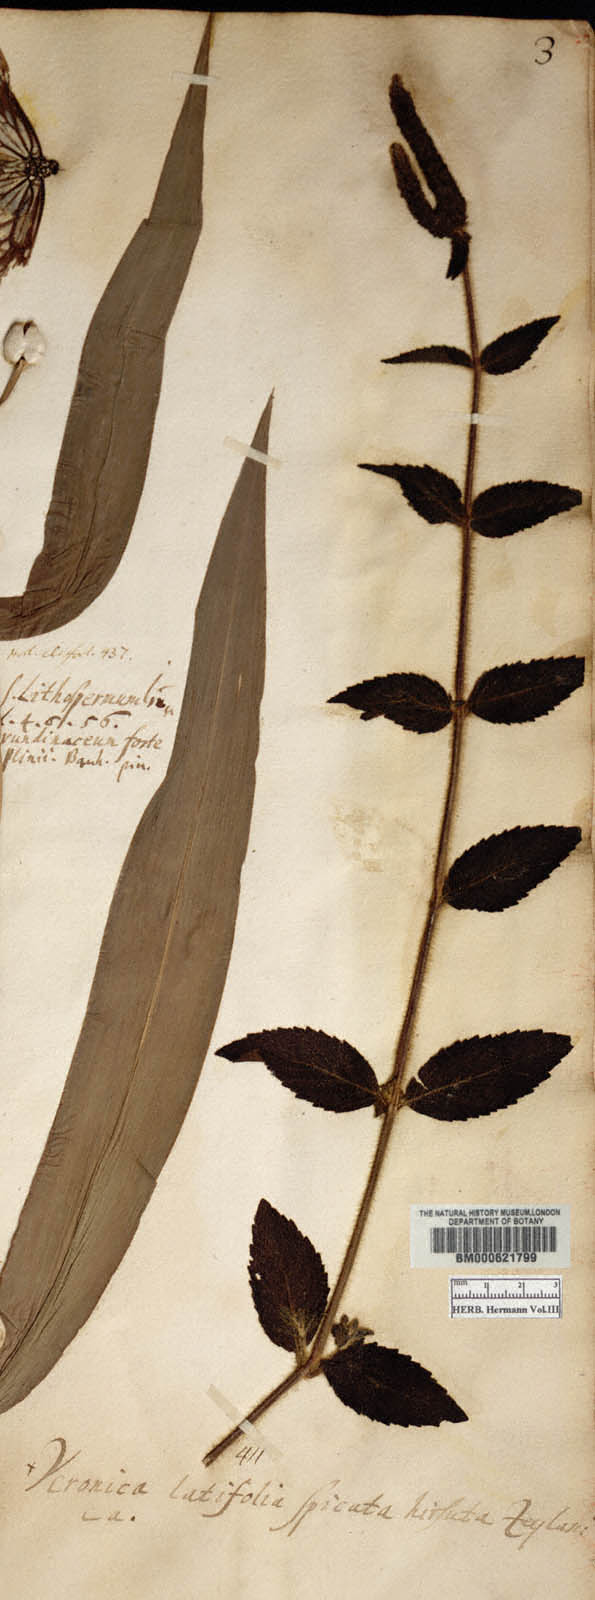 3
Hort. cliffort. 437.
s. Lithospermum
L. 4. 5. 56.
rundinaceum forte
Plinii. Bauh. pin.
THE NATURAL HISTORY MUSEUM,LONDON
DEPARTMENT OF BOTANY
BM000621799
mm 1 2 3
HERB. Hermann Vol.III
411
Veronica latifolia spicata hirsuta Zeylani
ca.